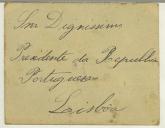 Sr. Dignissimo
Presidente da Republica
Portuguesa
Lisbôa